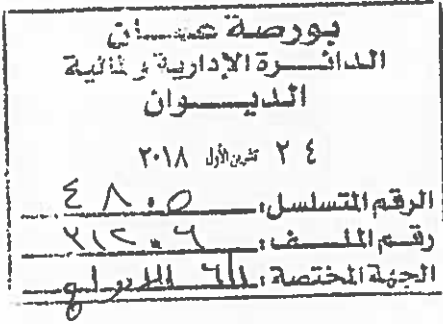 بورصة عمان
الدائرة الإدارية والمالية
الديوان
٢٤ تشرين الأول ٢٠١٨
الرقم المتسلسل: ٤٨٠٥
رقم الملف: ٣١٢٠٦
الجهة المختصة: